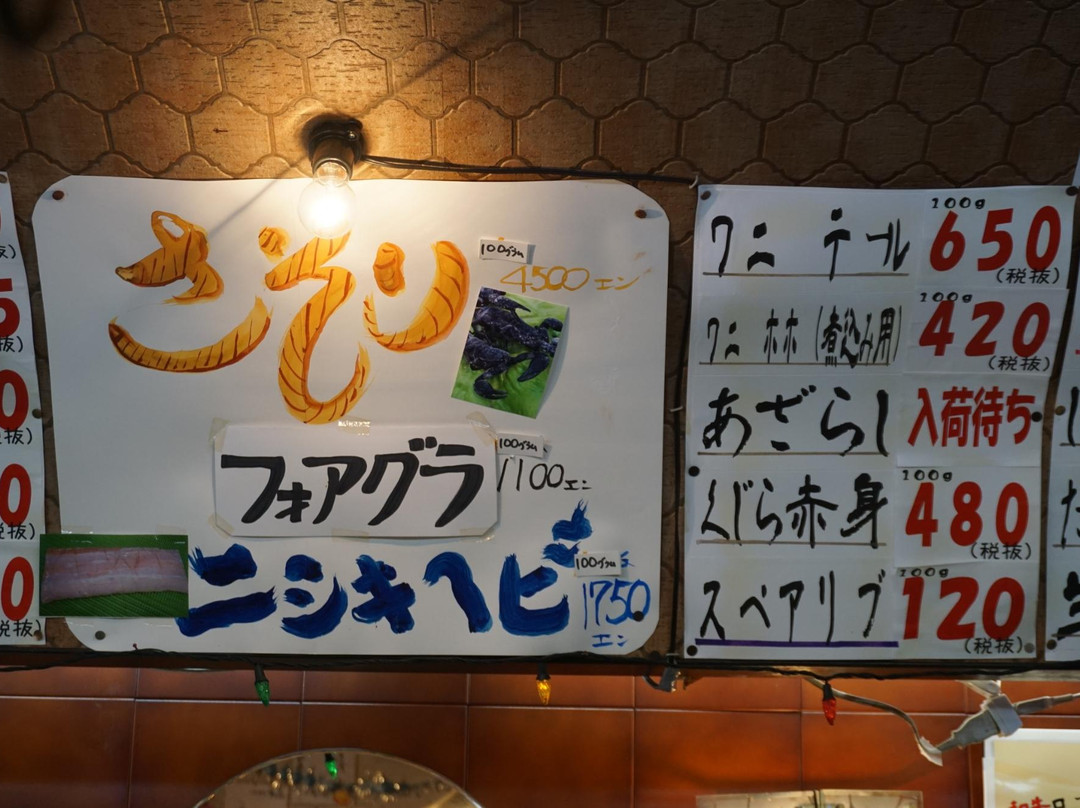 さそり
100グラム
4500エン
フォアグラ
100グラム
1100エン
ニシキヘビ
100グラム
1750
エン
ワニ テール
100g
650
(税抜)
ワニ ホホ (煮込み用)
100g
420
(税抜)
あざらし
入荷待ち
くじら赤身
100g
480
(税抜)
スペアリブ
100g
120
(税抜)